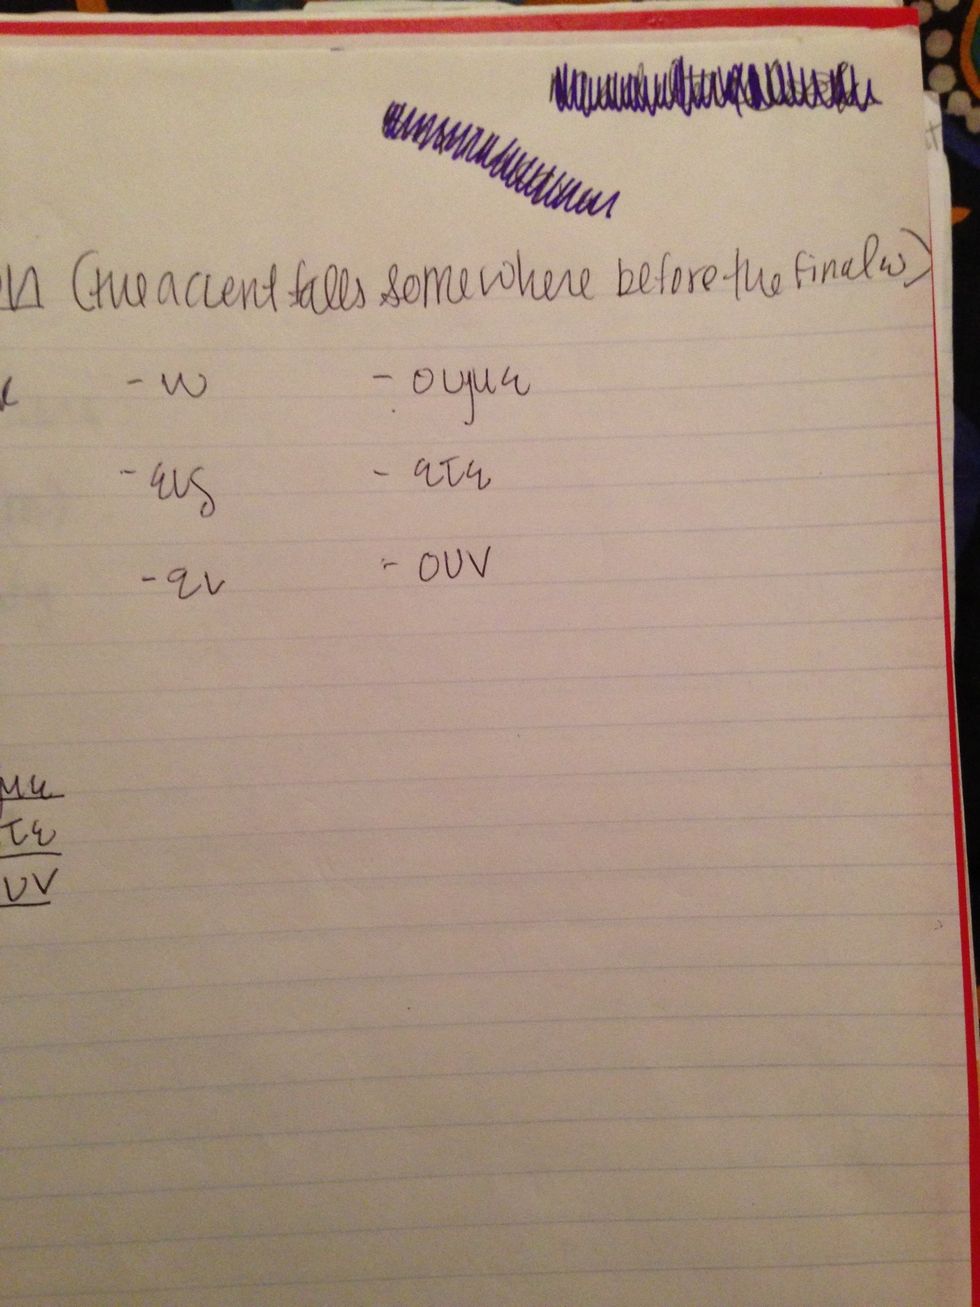 (the accent falls somewhere before the final ω)
-ω -ουμε
-εις -ετε
-ει -ουν
με
τε
υν